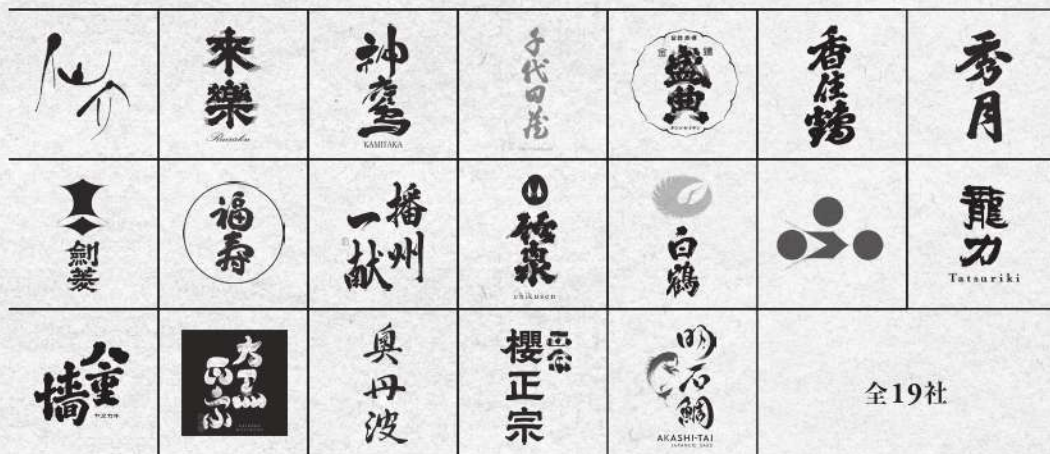 仙介
來樂
Rairaku
神鷹
KAMITAKA
千代田蔵
盛典
香住鶴
秀月
劍菱
福寿
播州
一献
竹泉
chikusen
白鶴
龍力
Tatsuriki
八重墻
大黒
正宗
奥丹波
櫻正宗
明石鯛
AKASHI-TAI
JAPANESE SAKE
全19社